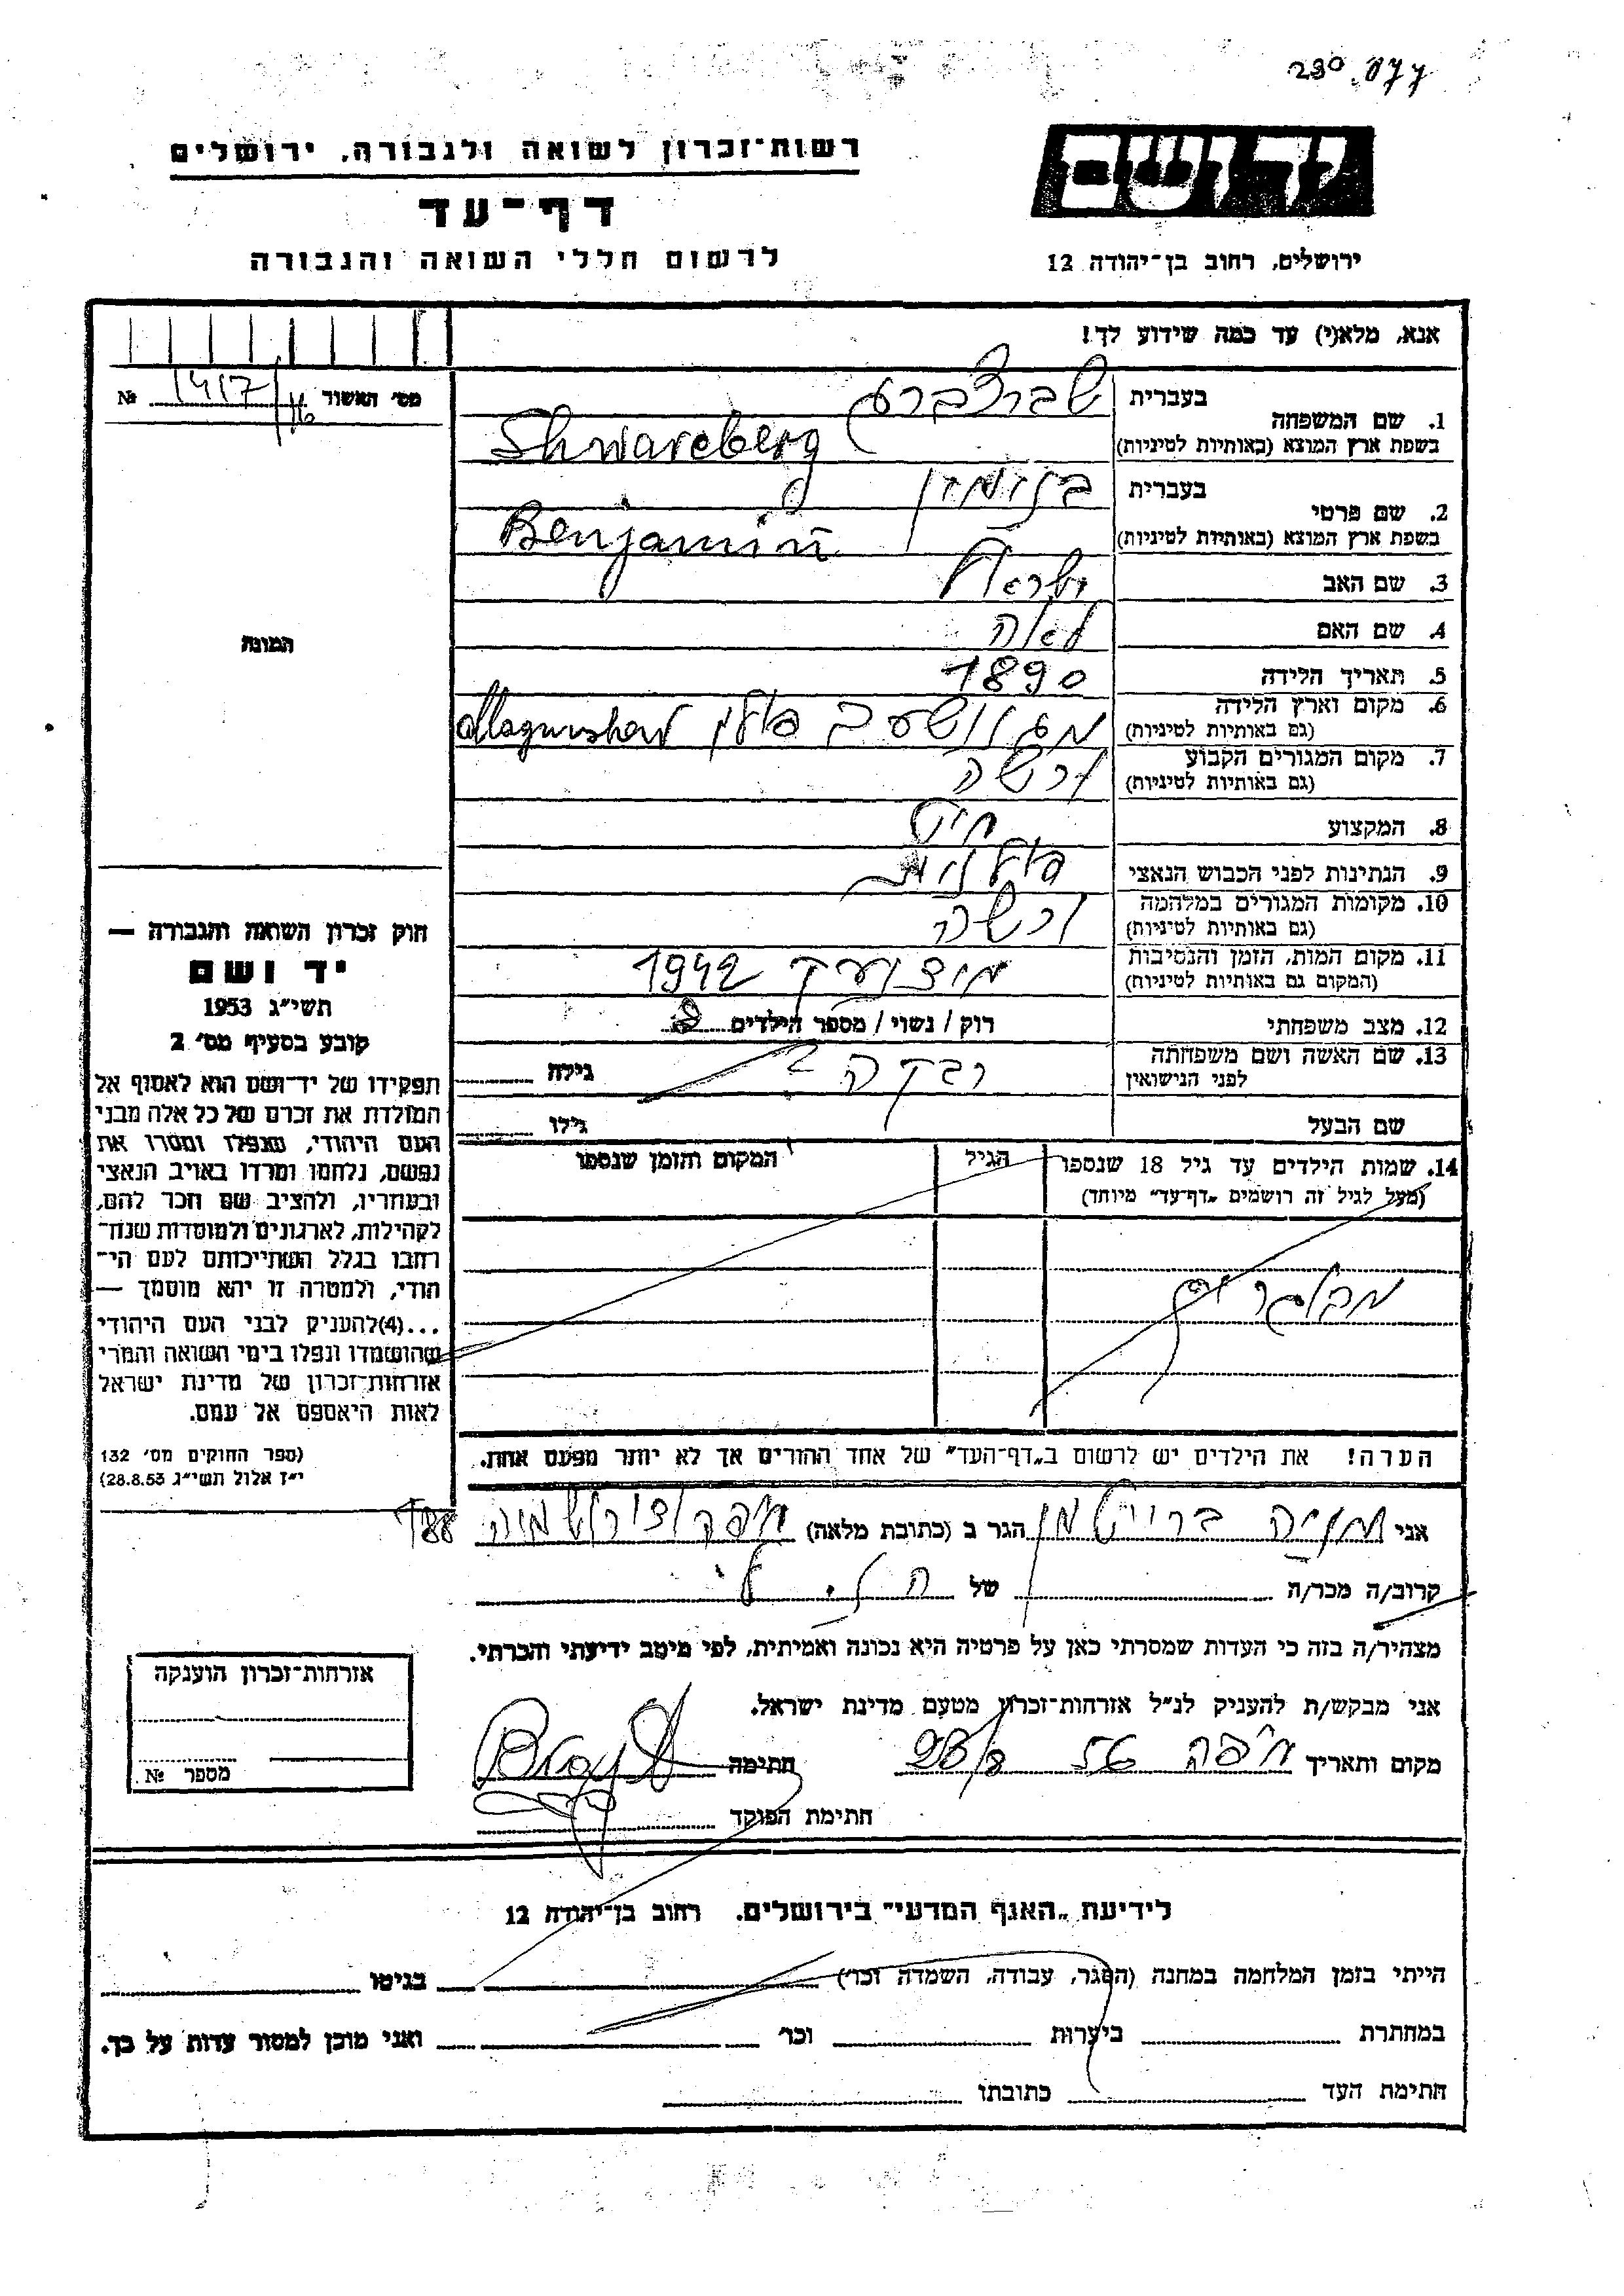 230.077
יד ושם
רשות־זכרון לשואה ולגבורה, ירושלים
דף־עד
לרשום חללי השואה והגבורה
ירושלים, רחוב בן־יהודה 12
אנא, מלא(י) עד כמה שידוע לך!
מס' האשור 1417/16 №
1. שם המשפחה
בעברית שברצברג
בשפת ארץ המוצא (באותיות לטיניות) Shwarcberg
2. שם פרטי
בעברית בנימין
בשפת ארץ המוצא (באותיות לטיניות) Benjamin
3. שם האב ישראל
4. שם האם לאה
5. תאריך הלידה 1890
6. מקום וארץ הלידה
(גם באותיות לטיניות) מגנושעב פולין Magnushew
7. מקום המגורים הקבוע
(גם באותיות לטיניות) ורשה
8. המקצוע חיט
9. הנתינות לפני הכבוש הנאצי פולנית
10. מקומות המגורים במלחמה
(גם באותיות לטיניות) ורשה
11. מקום המות, הזמן והנסיבות
(המקום גם באותיות לטיניות) 1942
12. מצב משפחתי רוק / נשוי / מספר הילדים
13. שם האשה ושם משפחתה
לפני הנישואין רבקה ? גילה
שם הבעל גילו
14. שמות הילדים עד גיל 18 שנספו הגיל המקום והזמן שנספו
(מעל לגיל זה רושמים „דף־עד" מיוחד)
מבוגרים
הערה! את הילדים יש לרשום ב„דף־העד" של אחד ההורים אך לא יותר מפעם אחת.
התמונה
חוק זכרון השואה והגבורה —
יד ושם
תשי"ג 1953
קובע בסעיף מס' 2
תפקידו של יד־ושם הוא לאסוף אל
המולדת את זכרם של כל אלה מבני
העם היהודי, שנפלו ומסרו את
נפשם, נלחמו ומרדו באויב הנאצי
ובעוזריו, ולהציב שם וזכר להם,
לקהילות, לארגונים ולמוסדות שנח־
רבו בגלל השתייכותם לעם הי־
הודי, ולמטרה זו יהא מוסמך —
...(4)להעניק לבני העם היהודי
שהושמדו ונפלו בימי השואה והמרי
אזרחות־זכרון של מדינת ישראל
לאות היאספם אל עמם.
(ספר החוקים מס' 132
י"ז אלול תשי"ג 28.8.53)
אני מניה ברויטמן הגר ב (כתובת מלאה) חיפה 188
קרוב/ה מכר/ה של הנ.ל.
מצהיר/ה בזה כי העדות שמסרתי כאן על פרטיה היא נכונה ואמיתית, לפי מיטב ידיעתי והכרתי.
אני מבקש/ת להעניק לנ"ל אזרחות־זכרון מטעם מדינת ישראל.
מקום ותאריך חיפה חתימה
חתימת הפוקד
אזרחות־זכרון הוענקה
מספר №
לידיעת „האגף המדעי" בירושלים. רחוב בן־יהודה 12
הייתי בזמן המלחמה במחנה (הסגר, עבודה, השמדה וכו') בגיטו
במחתרת ביערות וכו' ואני מוכן למסור עדות על כך.
חתימת העד כתובתו